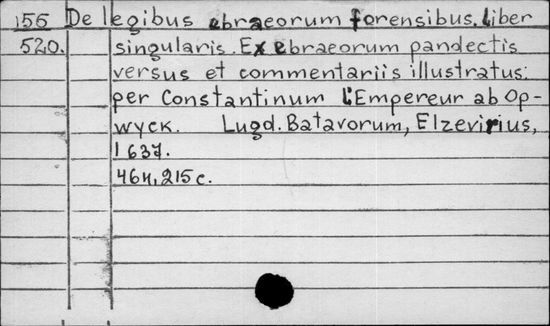 156 De legibus ebraeorum forensibus. Liber
520. singularis. Ex ebraeorum pandectis
versus et commentariis illustratus:
per Constantinum L'Empereur ab Op-
wyck. Lugd. Batavorum, Elzevirius,
1637.
464, 215 c.